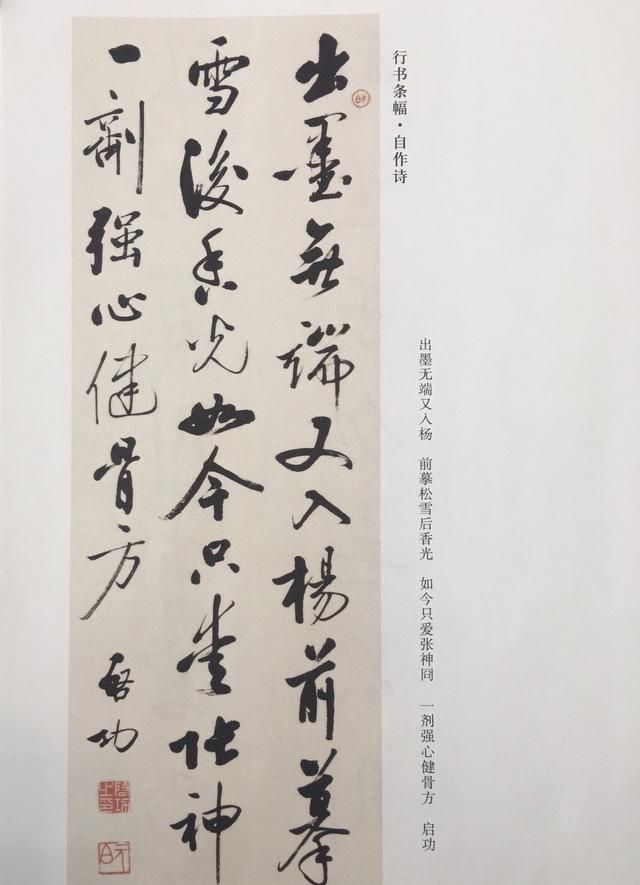 行书条幅·自作诗
出墨无端又入杨 前摹松雪后香光 如今只爱张神冏 一剂强心健骨方 启功
出墨無端又入楊前摹
雪後香光如今只愛張神
一劑强心健骨方
啓功